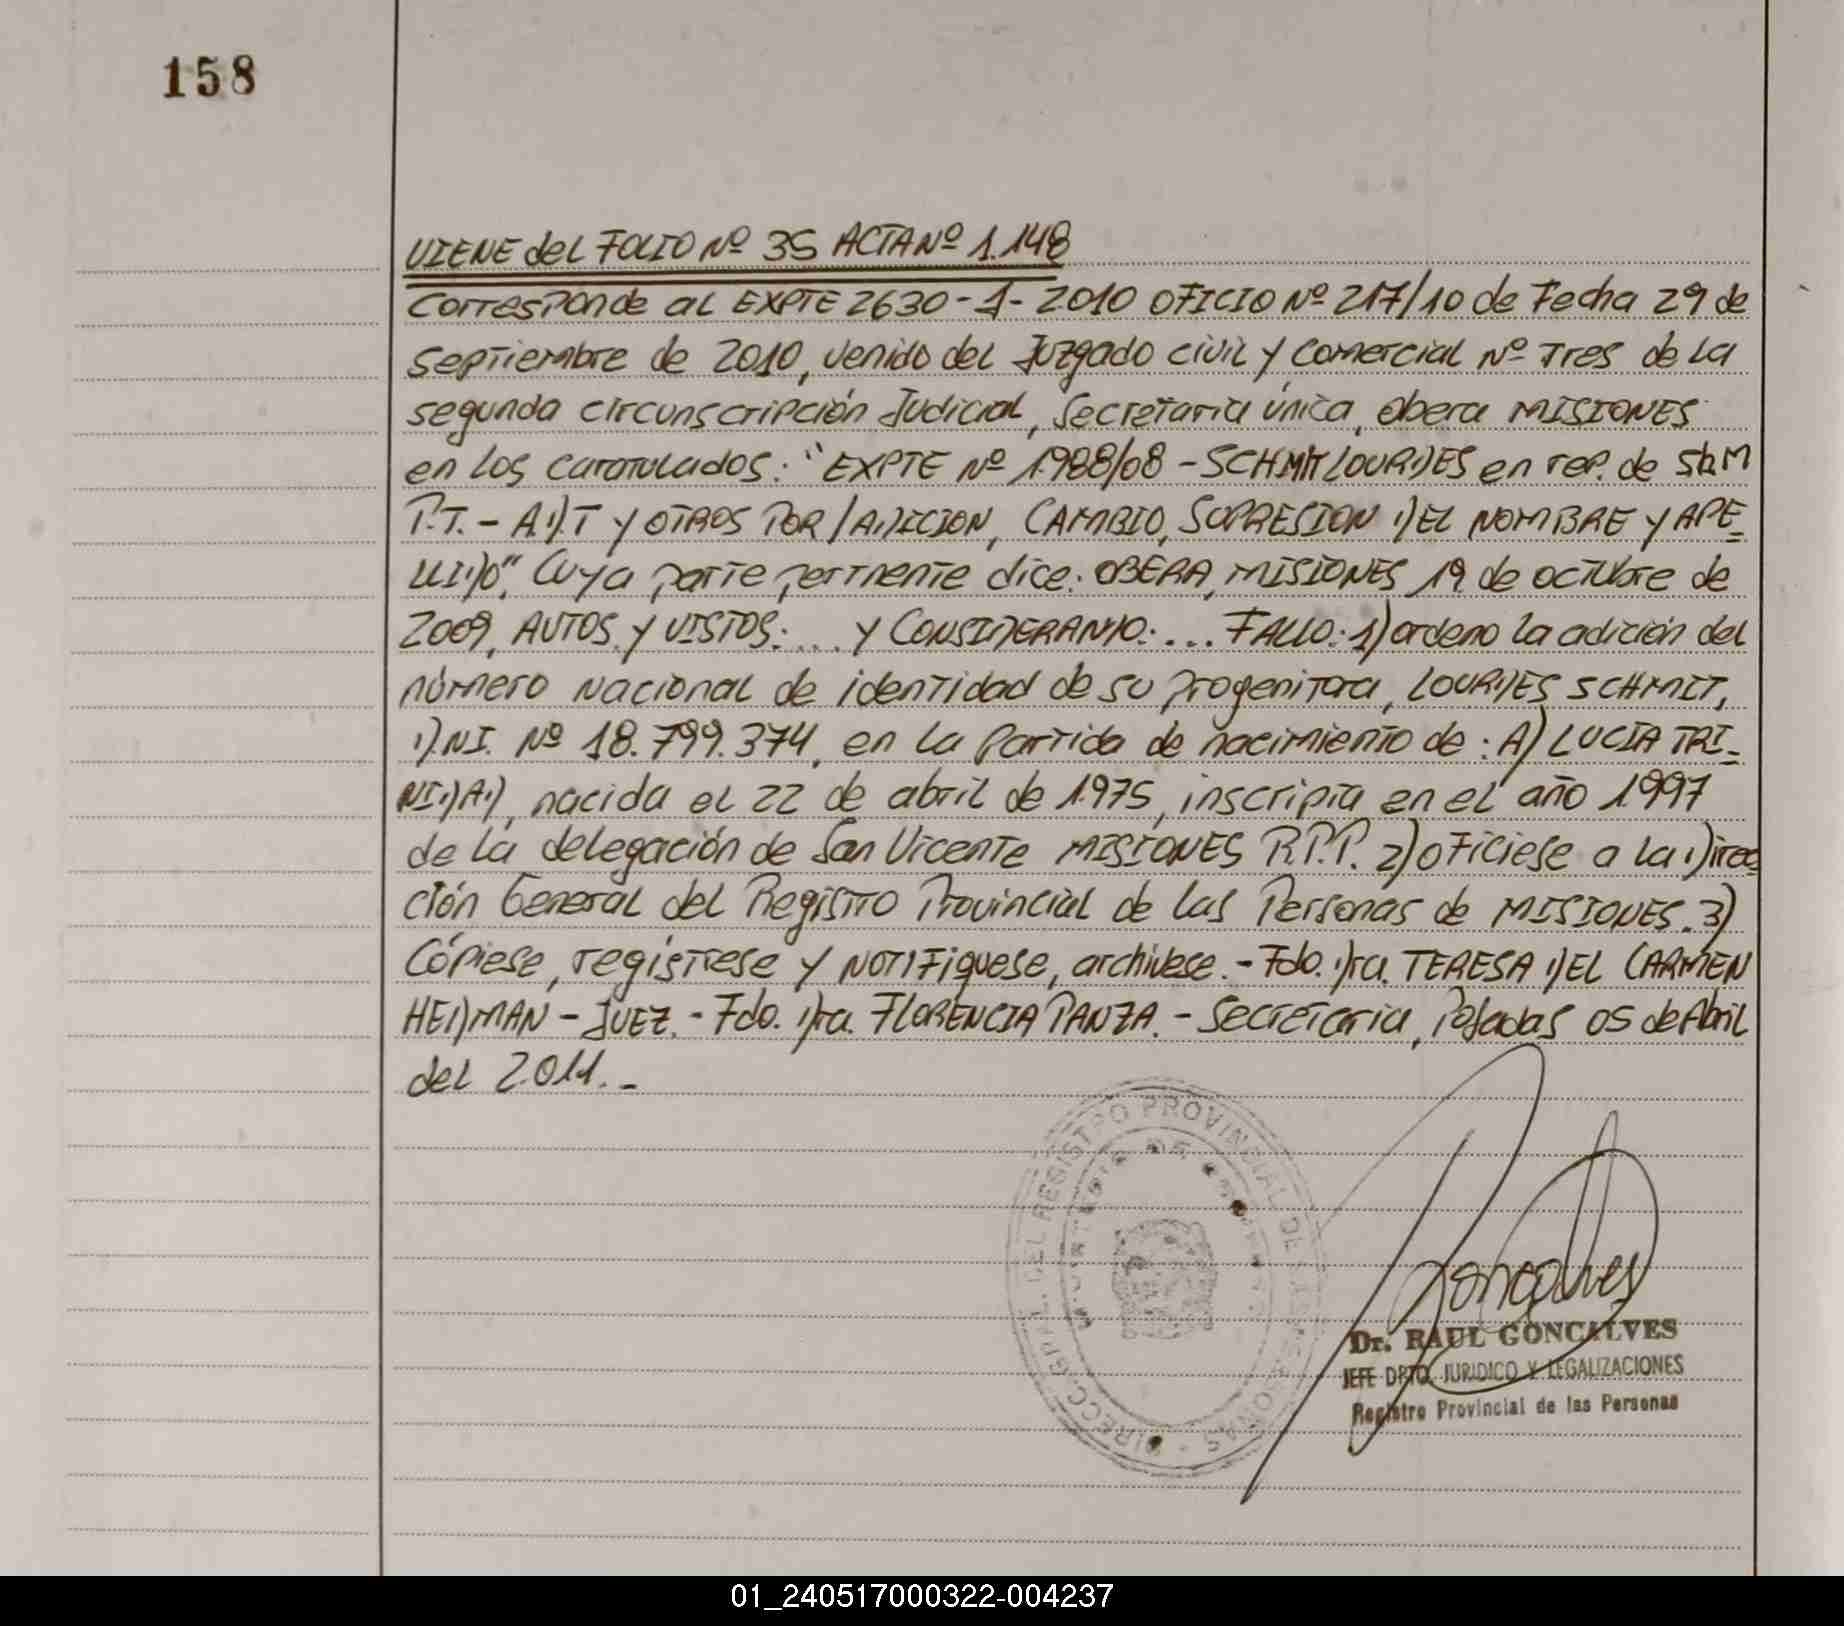 158
VIENE del FOLIO Nº 35 ACTA Nº 1.148
Corresponde al EXPTE 2630-1-2010 OFICIO Nº 217/10 de Fecha 29 de
septiembre de 2010, venido del Juzgado civil y Comercial Nº Tres de la
segunda circunscripción Judicial, Secretaria única, obera MISIONES
en los caratulados: "EXPTE Nº 1988/08 - SCHMIT LOURDES en rep. de
P.T. - A.D.T Y OTROS POR/ADICION, CAMBIO, SUPRESION DEL NOMBRE y APE-
LLIDO", Cuya parte pertinente dice: OBERA, MISIONES 19 de octubre de
2009, AUTOS Y VISTOS: ... Y CONSIDERANDO: ... FALLO: 1) ordeno la adición del
número nacional de identidad de su progenitora, LOURDES SCHMIT,
D.NI. Nº 18.799.374, en la partida de nacimiento de: A) LUCIA TRI-
NIDAD, nacida el 22 de abril de 1975, inscripta en el año 1997
de la delegación de San Vicente MISIONES R.P.P. 2) oficiese a la Direc-
ción General del Registro Provincial de las Personas de MISIONES. 3)
Cópiese, regístrese y NOTIFiquese, archivese. - Fdo. Dra. TERESA DEL CARMEN
HEDMAN - JUEZ. - Fdo. Dra. FLORENCIA PANZA. - Secretaria, Posadas 05 de Abril
del 2.011. -
DIRECC. GRAL. DEL REGISTRO PROVINCIAL DE LAS PERSONAS
Goncalves
Dr. RAUL GONCALVES
JEFE DPTO. JURIDICO Y LEGALIZACIONES
Registro Provincial de las Personas
01_240517000322-004237